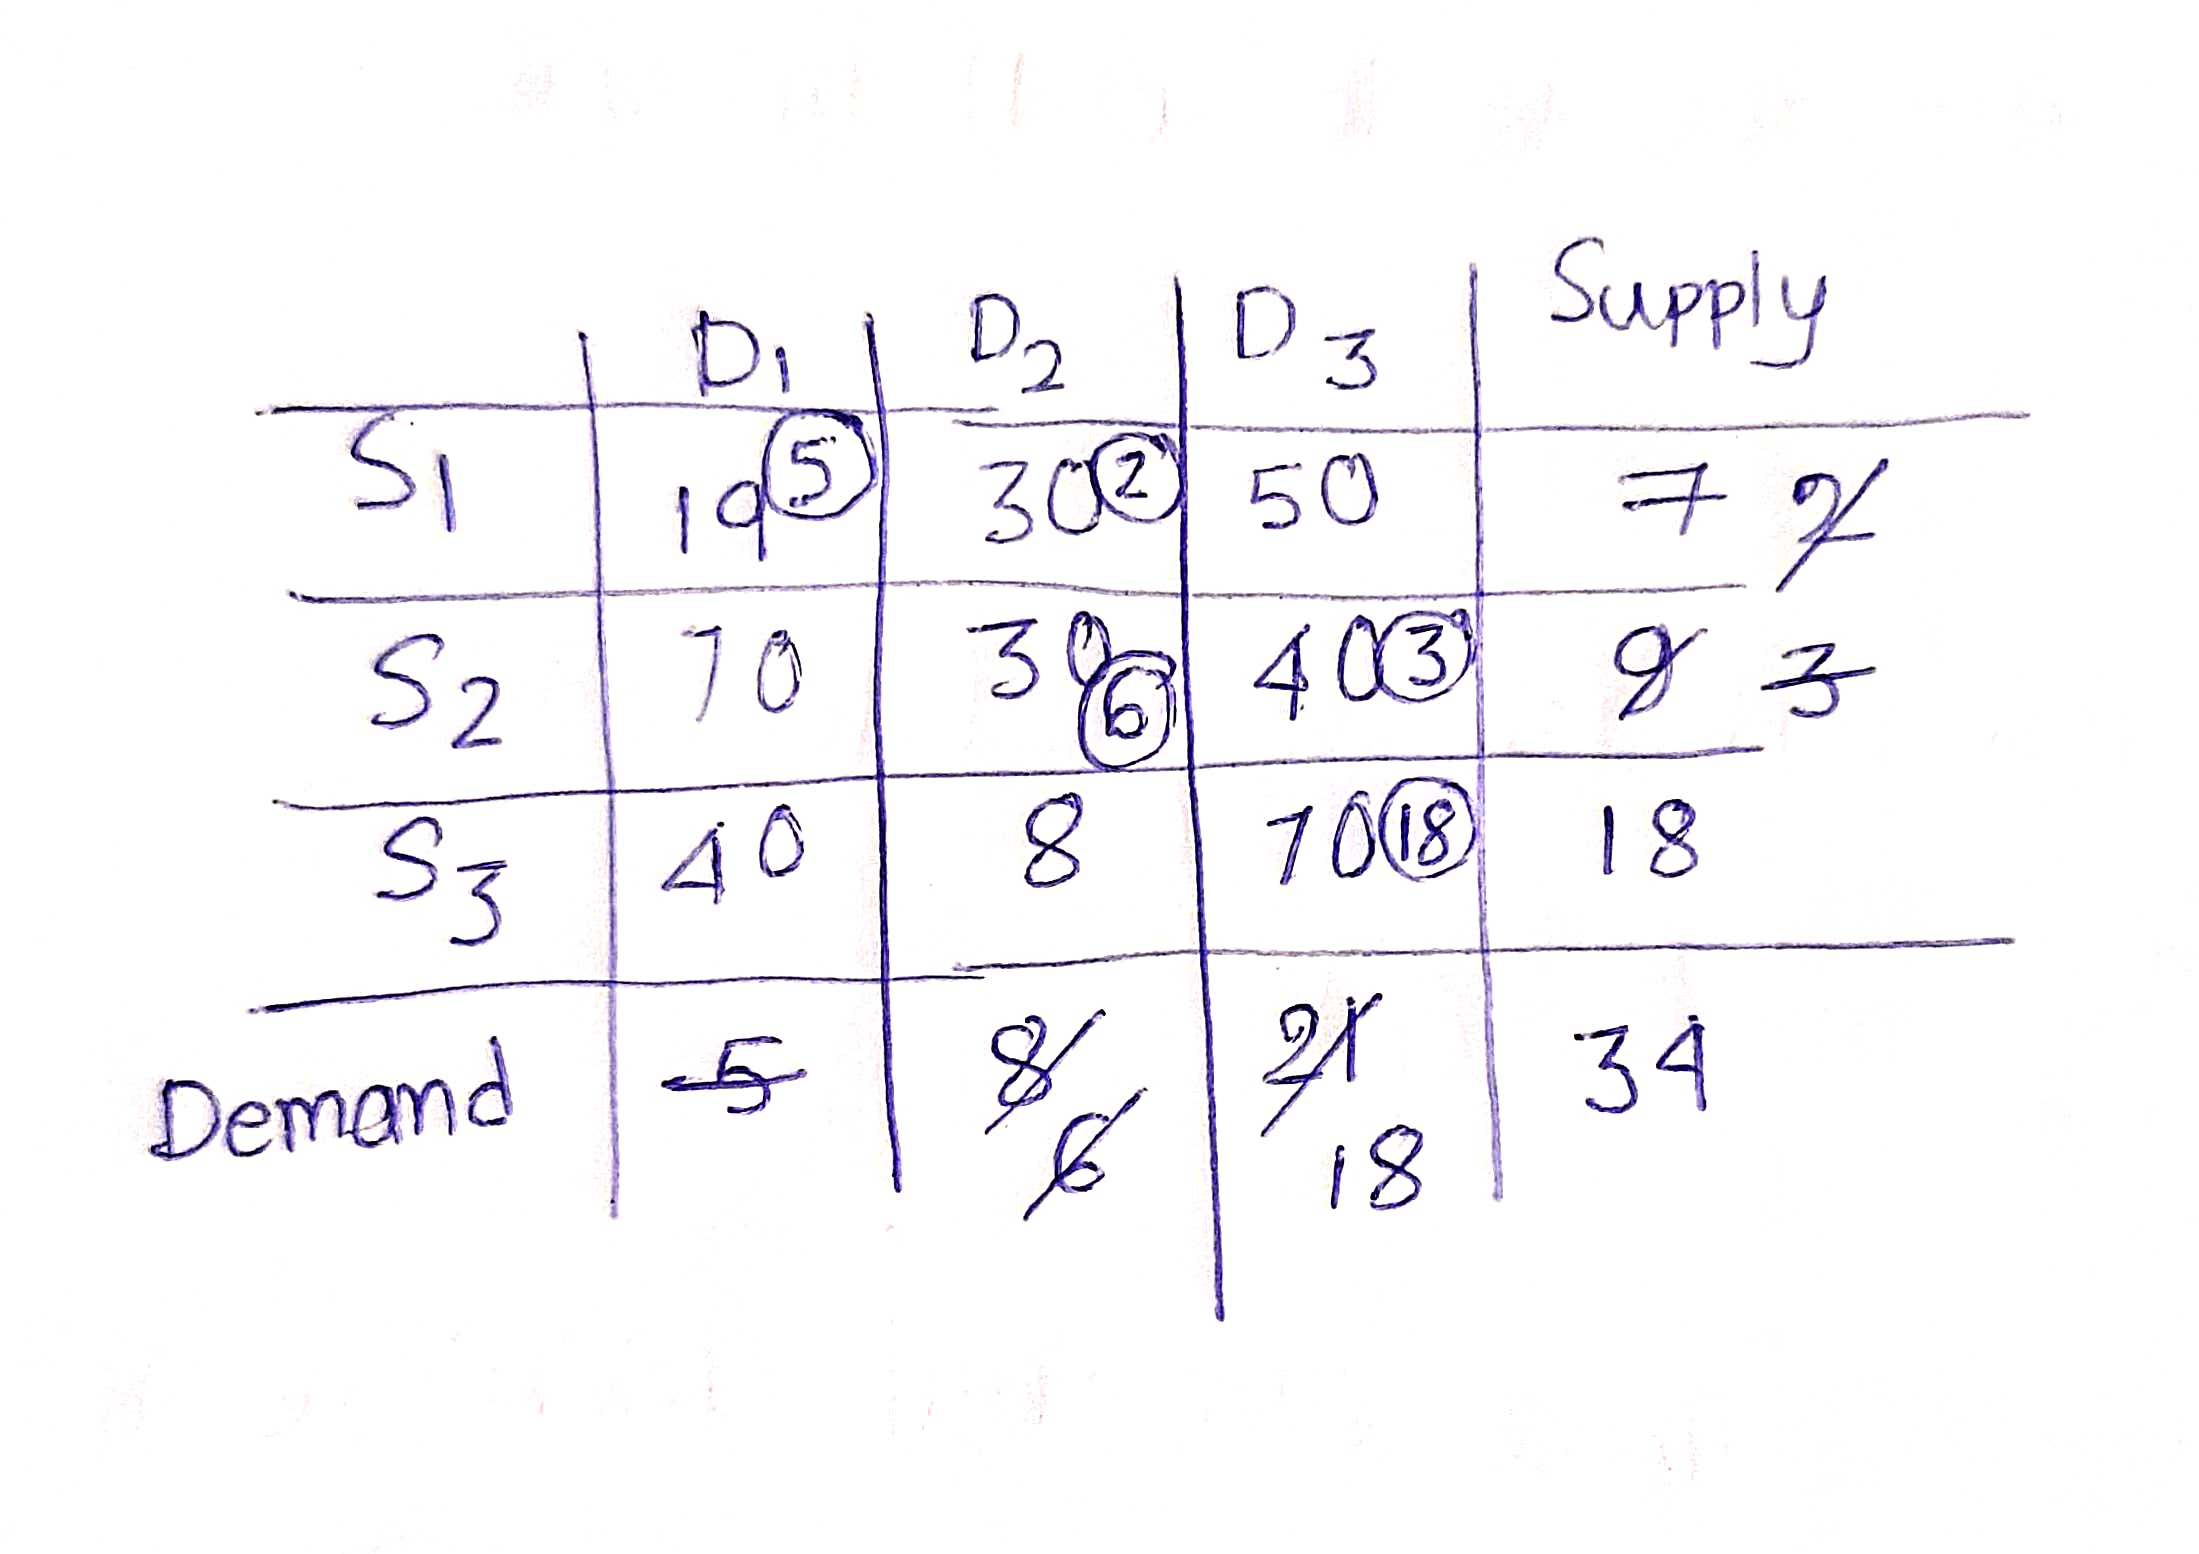 D1 D2 D3 Supply
S1 19 5 30 2 50 7 2
S2 70 30 6 40 3 9 3
S3 40 8 70 18 18
Demand 5 8 21 34
6 18